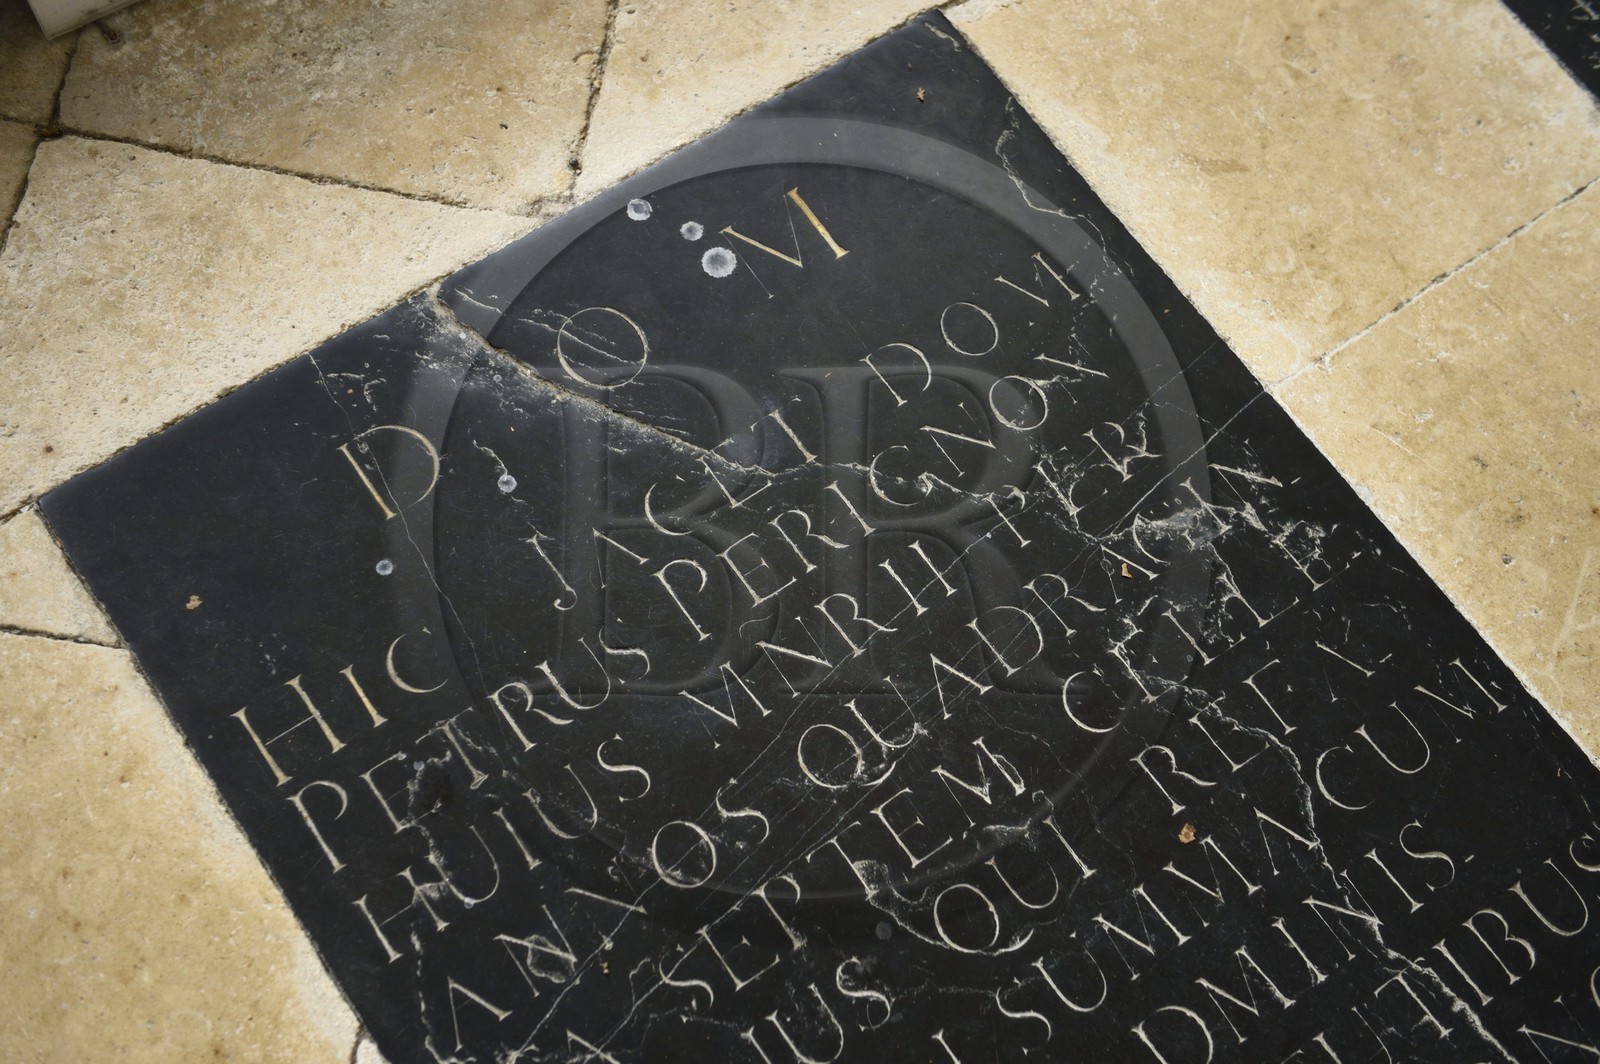 D O M
HIC JACET DOM
PETRUS PERIGNON
HUIUS MNRII PER
ANNOS QUADRAGIN
A SEPTEM CELLE
IUS QUI RE FA
I SUMMA CUM
DMINIS-
UTIBUS
BR